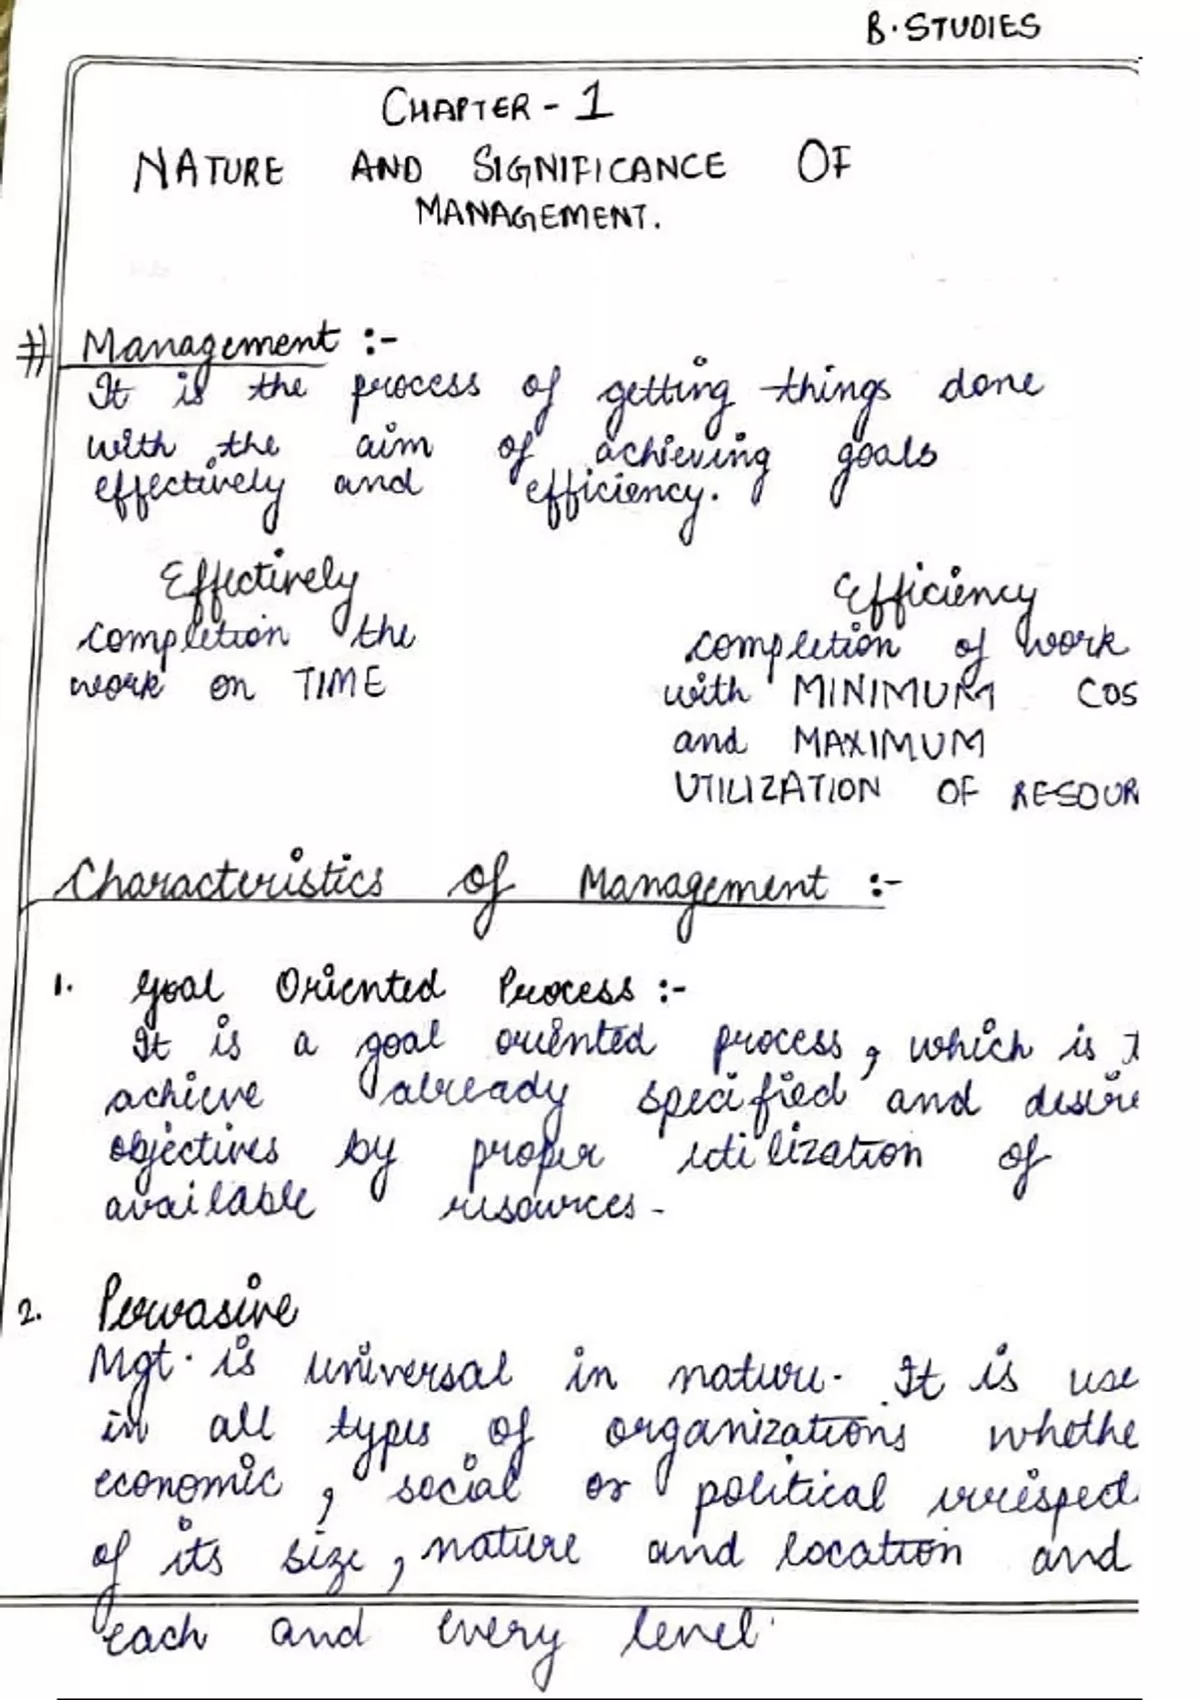 B. STUDIES
CHAPTER - 1
NATURE AND SIGNIFICANCE OF
MANAGEMENT.
# Management :-
It is the process of getting things done
with the aim of achieving goals
effectively and efficiency.
Effectively
completion the
work on TIME
Efficiency
completion of work
with MINIMUM COS
and MAXIMUM
UTILIZATION OF RESOUR
Characteristics of Management :-
1. Goal Oriented Process :-
It is a goal oriented process, which is t
achieve already specified and desire
objectives by proper utilization of
available resources -
2. Pervasive
Mgt. is universal in nature. It is use
in all types of organizations whethe
economic, social or political irrespect
of its size, nature and location and
each and every level.